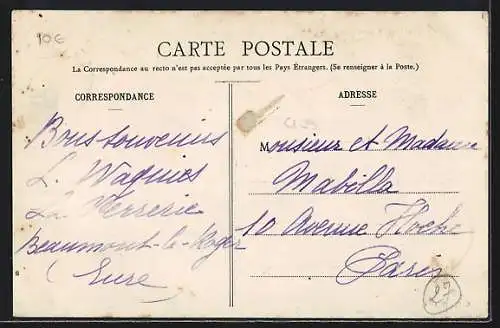 10€
CARTE POSTALE
La Correspondance au recto n'est pas acceptée par tous les Pays Étrangers. (Se renseigner à la Poste.)
CORRESPONDANCE
Bons souvenirs
L. Wagnies
La Verrerie
Beaumont-le-Roger
Eure
ADRESSE
Monsieur et Madame
Mabilla
10 Avenue Hoche
Paris
27